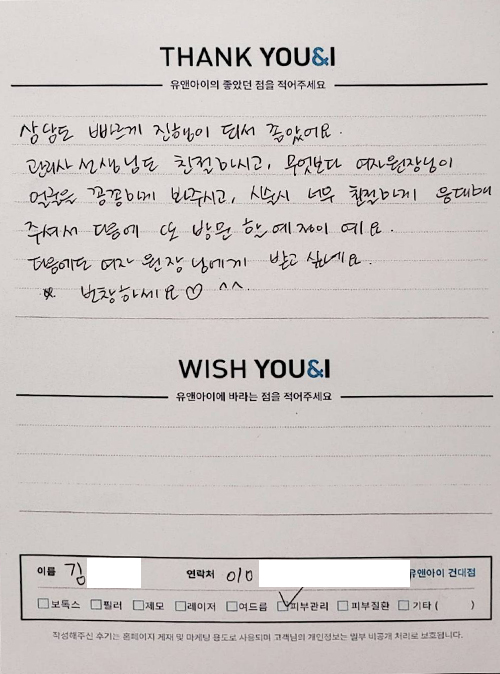 THANK YOU&I
유앤아이의 좋았던 점을 적어주세요
상담도 빠르게 진행이 되서 좋았어요.
관리사 선생님도 친절하시고, 무엇보다 여자원장님이
얼굴을 꼼꼼하게 봐주시고, 시술시 너무 친절하게 응대해
주셔서 다음에 또 방문 할 예정이예요.
다음에도 여자 원장님에게 받고 싶네요.
※ 번창하세요♡ ^^.
WISH YOU&I
유앤아이에 바라는 점을 적어주세요
이름 김 연락처 010 유앤아이 건대점
□보톡스 □필러 □제모 □레이저 □여드름 ☑피부관리 □피부질환 □기타 ( )
작성해주신 후기는 홈페이지 게재 및 마케팅 용도로 사용되며 고객님의 개인정보는 일부 비공개 처리로 보호됩니다.